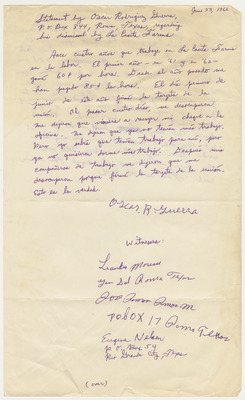 June 27, 1966
Statement by Oscar Rodriguez Guerra,
P.O Box 844, Roma, Texas, regarding
his dismissal by La Casita Farms
Hace cuatro años que trabajo en La Casita Farms
en la labor. El primer año - en '61 y '62
gané 60¢ por hora. Desde el año pasado me
han pagado 80¢ la hora. El día primero de
junio de este año firmé la tarjeta de la
unión. Al pasar cuatro días, se
me dijeron que viniera a recoger mi cheque a la
oficina. Me dijeron que ya no tenían más trabajo.
Pero yo sabía que tenían trabajo para mí, pero
que no quisieron darme más trabajo. Después mis
compañeros de trabajo me dijeron que me
descansaron porque firmé la tarjeta de la unión.
Esto es la verdad.
Oscar R. Guerra
Witnesses:
Leandro
Gen Del Roma Tex
Jose
PO BOX 17 Roma Texas
Eugene Nelson
P.O. Box 54
Rio Grande City, Texas
(over)